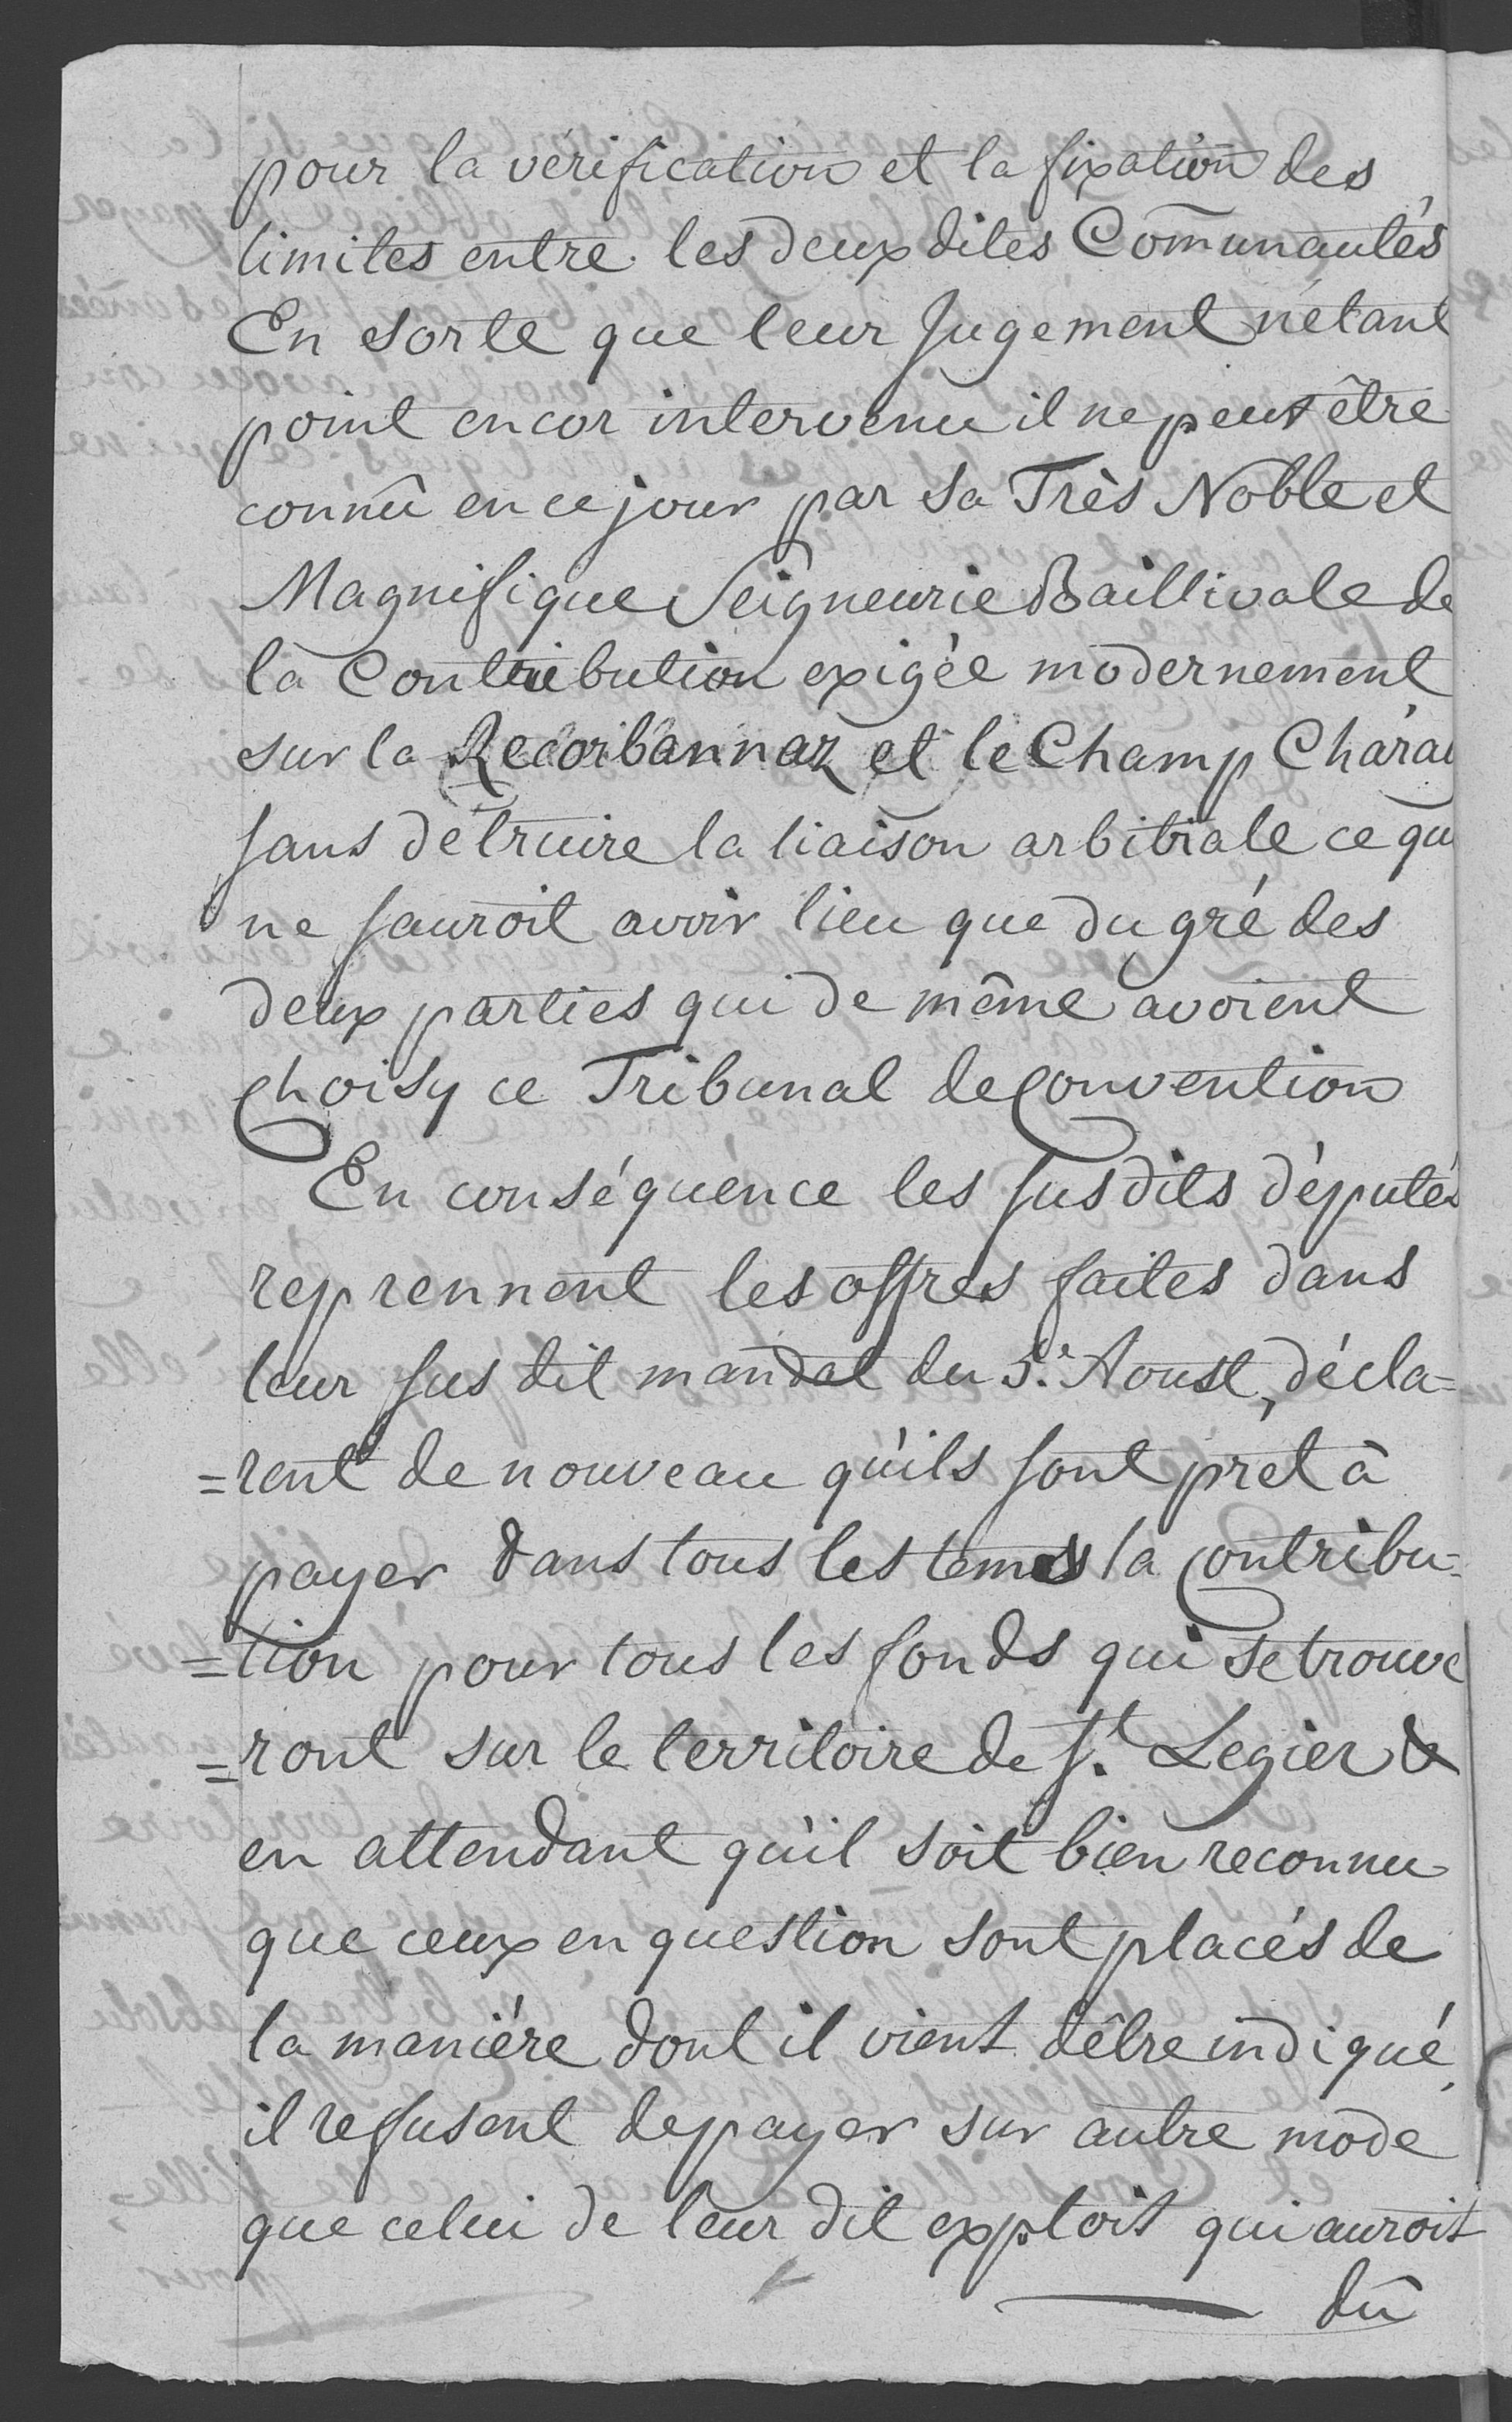 pour la vérification et la fixation des
limites entre les deux dites Com̄unautés
En sorte que leur Jugement n'étant
point encor intervenu il ne peut être
connû en ce jour par sa Très Noble et
Magnifique Seigneurie Baillivale de
la Contribution exigée modernement
sur la Recorbannaz et le Champ
sans détruire la liaison arbitrale ce qu
ne sauroit avoir lieu que du gré des
deux parties qui de même avoient
choisy ce Tribunal de Convention
En conséquence les susdits députés
reprennent les offres faites dans
leur sus dit mandat du 5.e Aoust, décla=
=rent de nouveau qu'ils sont prêt à
payer dans tous les tems la Contribu=
=tion pour tous les fonds qui se trouve
=ront sur le territoire de St. Legier &
en attendant qu'il soit bien reconnu
que ceux en question sont placés de
la manière dont il vient d'être indiqué
il refusent de payer sur autre mode
que celui de leur dit exploit qui auroit
dû